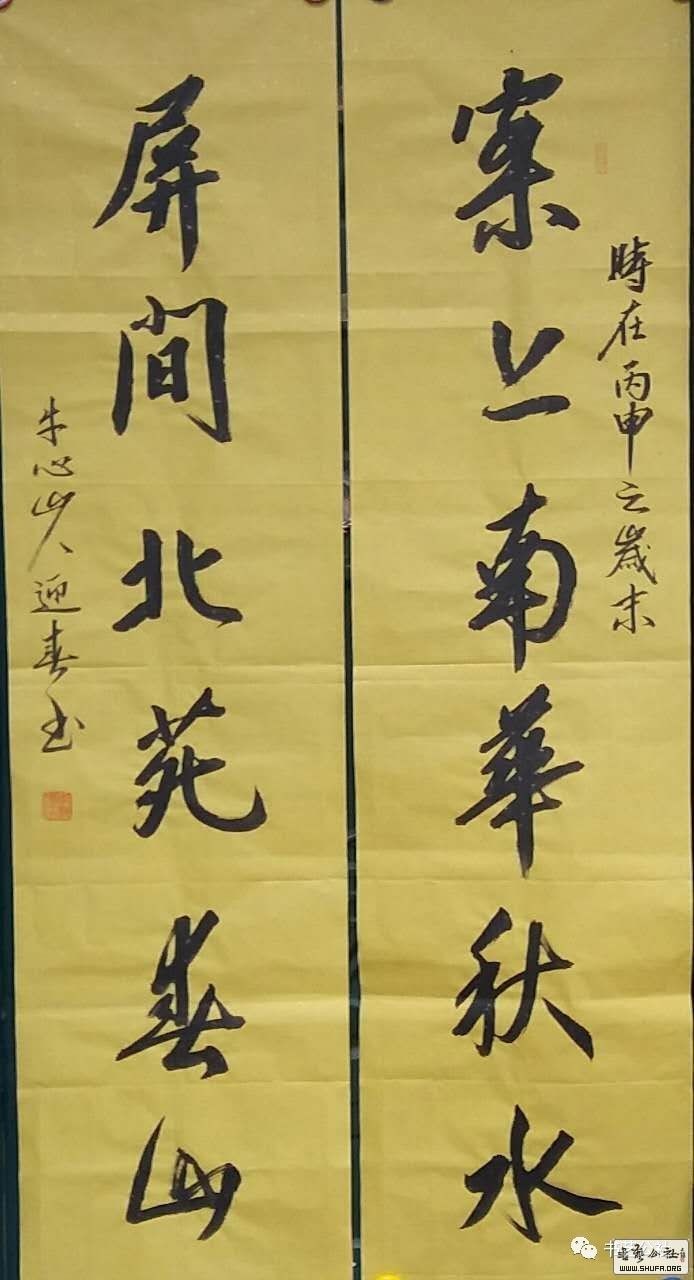 時在丙申之歲末
案上南華秋水
屏間北苑春山
牛心山人迎春书
WWW.SHUFA.ORG